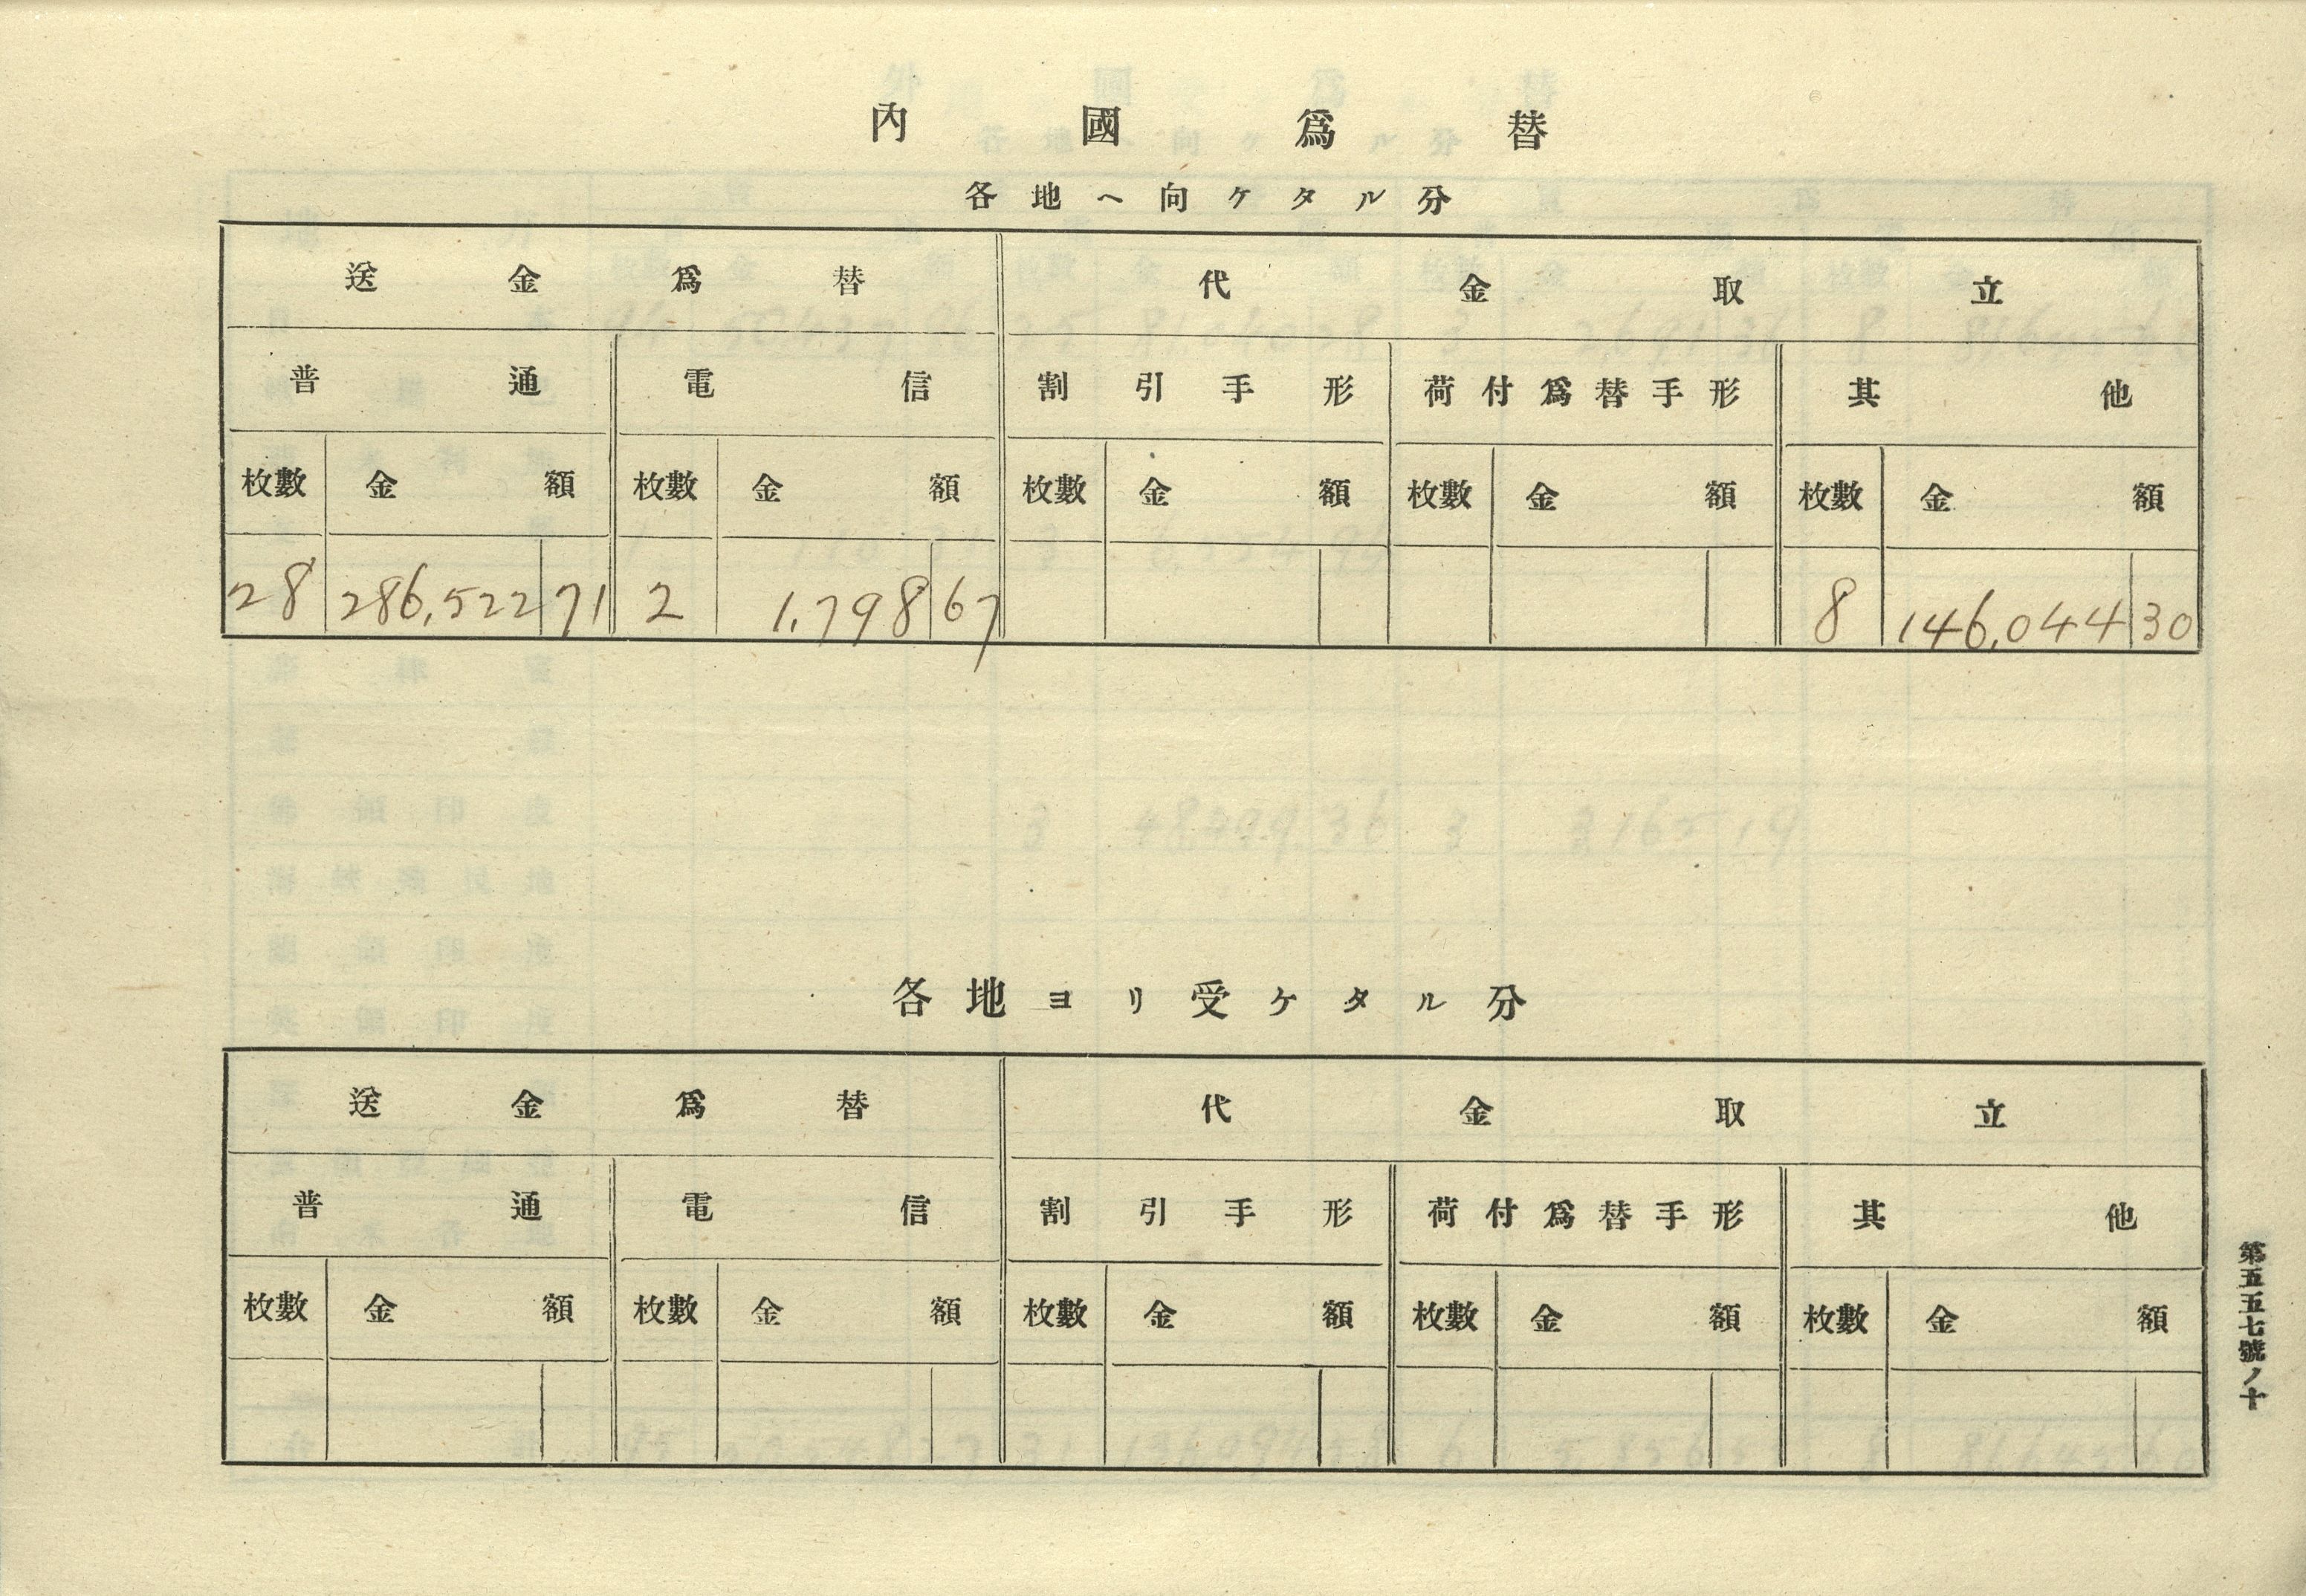 內國爲替
各地ヘ向ケタル分
送金爲替 代金取立
普通 電信 割引手形 荷付爲替手形 其他
枚數 金額 枚數 金額 枚數 金額 枚數 金額 枚數 金額
28 286,522 71 2 1,798 67 8 146,044 30
各地ヨリ受ケタル分
送金爲替 代金取立
普通 電信 割引手形 荷付爲替手形 其他
枚數 金額 枚數 金額 枚數 金額 枚數 金額 枚數 金額
第五五七號ノ十